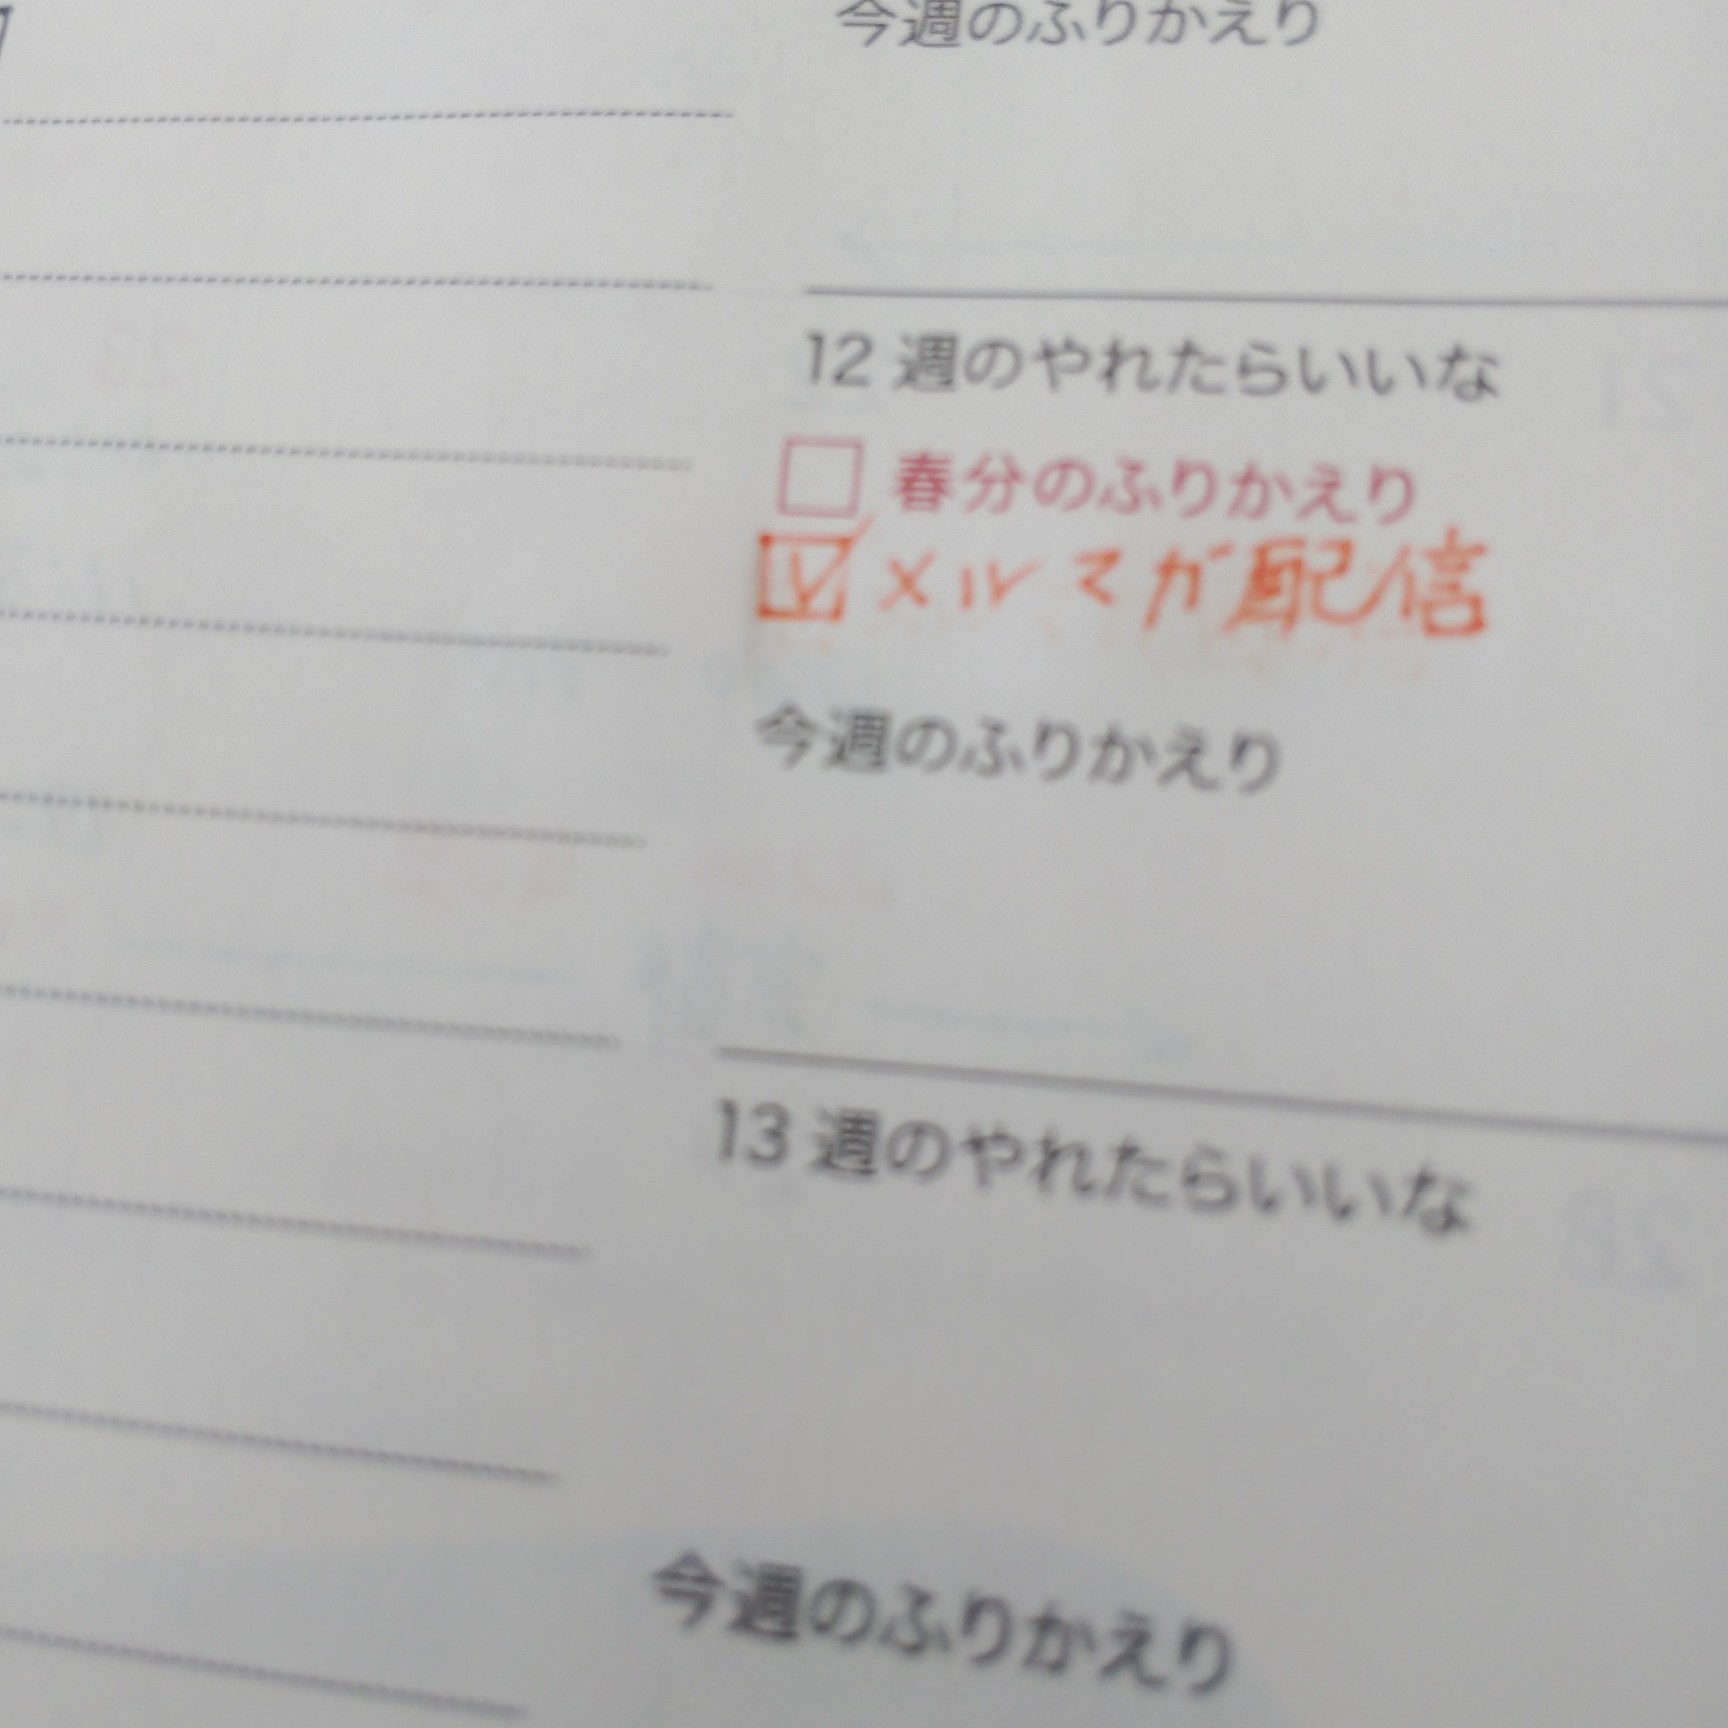 今週のふりかえり
12 週のやれたらいいな
□ 春分のふりかえり
☑ メルマガ配信
今週のふりかえり
13 週のやれたらいいな
今週のふりかえり